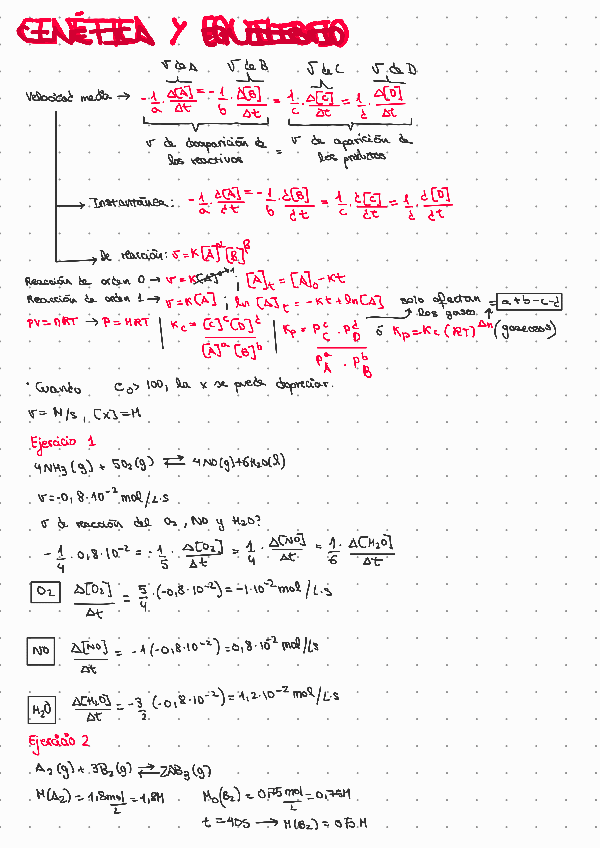 CINÉTICA Y EQUILIBRIO
v de A v de B v de C v de D
Velocidad media → -1/a · Δ[A]/Δt = -1/b · Δ[B]/Δt = 1/c · Δ[C]/Δt = 1/d · Δ[D]/Δt
v de desaparición de los reactivos = v de aparición de los productos
→ Instantánea: -1/a · d[A]/dt = -1/b · d[B]/dt = 1/c · d[C]/dt = 1/d · d[D]/dt
→ De reacción: v = K[A]^α [B]^β
Reacción de orden 0 → v = K ; [A]t = [A]0 - Kt
Reacción de orden 1 → v = K[A] ; ln [A]t = -Kt + ln[A] solo afectan los gases = a+b-c-d
PV = nRT → P = MRT | Kc = [C]^c [D]^d / [A]^a [B]^b | Kp = P_C^c · P_D^d / P_A^a · P_B^b ó Kp = Kc (RT)^Δn (gaseosos)
· Cuando C0 > 100, la x se puede depreciar.
v = M/s, [x] = M
Ejercicio 1
4NH3(g) + 5O2(g) ⇄ 4NO(g)+6H2O(l)
v = -0,8·10^-2 mol/L·s
v de reacción del O2, NO y H2O?
-1/4 · 0,8·10^-2 = -1/5 · Δ[O2]/Δt = 1/4 · Δ[NO]/Δt = 1/6 · Δ[H2O]/Δt
O2 Δ[O2]/Δt = 5/4 · (-0,8·10^-2) = -1·10^-2 mol/L·s
NO Δ[NO]/Δt = -1(-0,8·10^-2) = 0,8·10^-2 mol/Ls
H2O Δ[H2O]/Δt = -3/2 · (-0,8·10^-2) = 1,2·10^-2 mol/L·s
Ejercicio 2
A2(g) + 3B2(g) ⇄ 2AB3(g)
M(A2) = 1,8 mol/L = 1,8M M0(B2) = 0,75 mol/L = 0,75M
t = 40s → M(B2) = 0,5 M